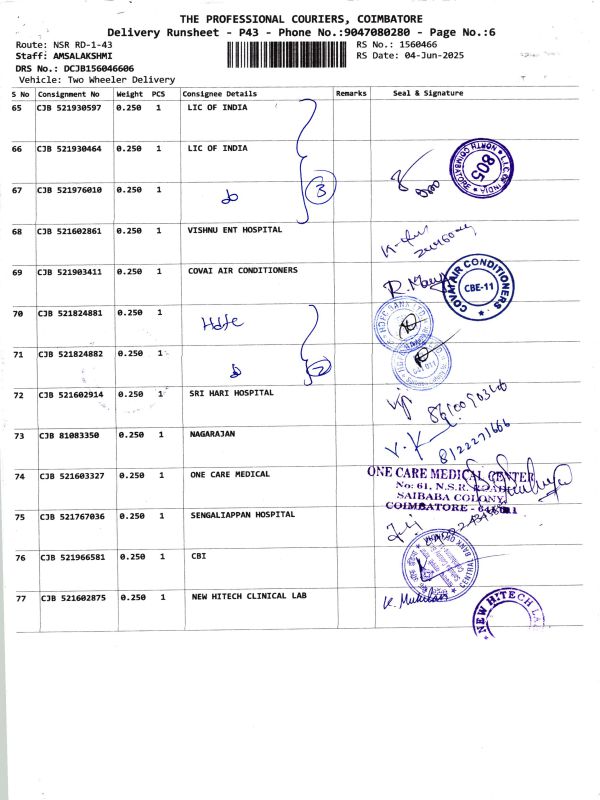 THE PROFESSIONAL COURIERS, COIMBATORE
Delivery Runsheet - P43 - Phone No.:9047080280 - Page No.:6
Route: NSR RD-1-43 RS No.: 1560466
Staff: AMSALAKSHMI RS Date: 04-Jun-2025
DRS No.: DCJB156046606
Vehicle: Two Wheeler Delivery
S No Consignment No Weight PCS Consignee Details Remarks Seal & Signature
65 CJB 521930597 0.250 1 LIC OF INDIA
66 CJB 521930464 0.250 1 LIC OF INDIA
L.I.C. OF INDIA NORTH COIMBATORE 805
67 CJB 521976010 0.250 1 do 3
68 CJB 521602861 0.250 1 VISHNU ENT HOSPITAL
69 CJB 521903411 0.250 1 COVAI AIR CONDITIONERS
COVAI AIR CONDITIONERS CBE-11
70 CJB 521824881 0.250 1 Hdfc
HDFC BANK LTD
71 CJB 521824882 0.250 1 do 2
72 CJB 521602914 0.250 1 SRI HARI HOSPITAL
73 CJB 81083350 0.250 1 NAGARAJAN V.K
8122271666
74 CJB 521603327 0.250 1 ONE CARE MEDICAL
ONE CARE MEDICAL CENTER
No: 61, N.S.R. ROAD
SAIBABA COLONY
COIMBATORE - 641 011
75 CJB 521767036 0.250 1 SENGALIAPPAN HOSPITAL
76 CJB 521966581 0.250 1 CBI
CENTRAL BANK OF INDIA
77 CJB 521602875 0.250 1 NEW HITECH CLINICAL LAB
NEW HITECH LAB